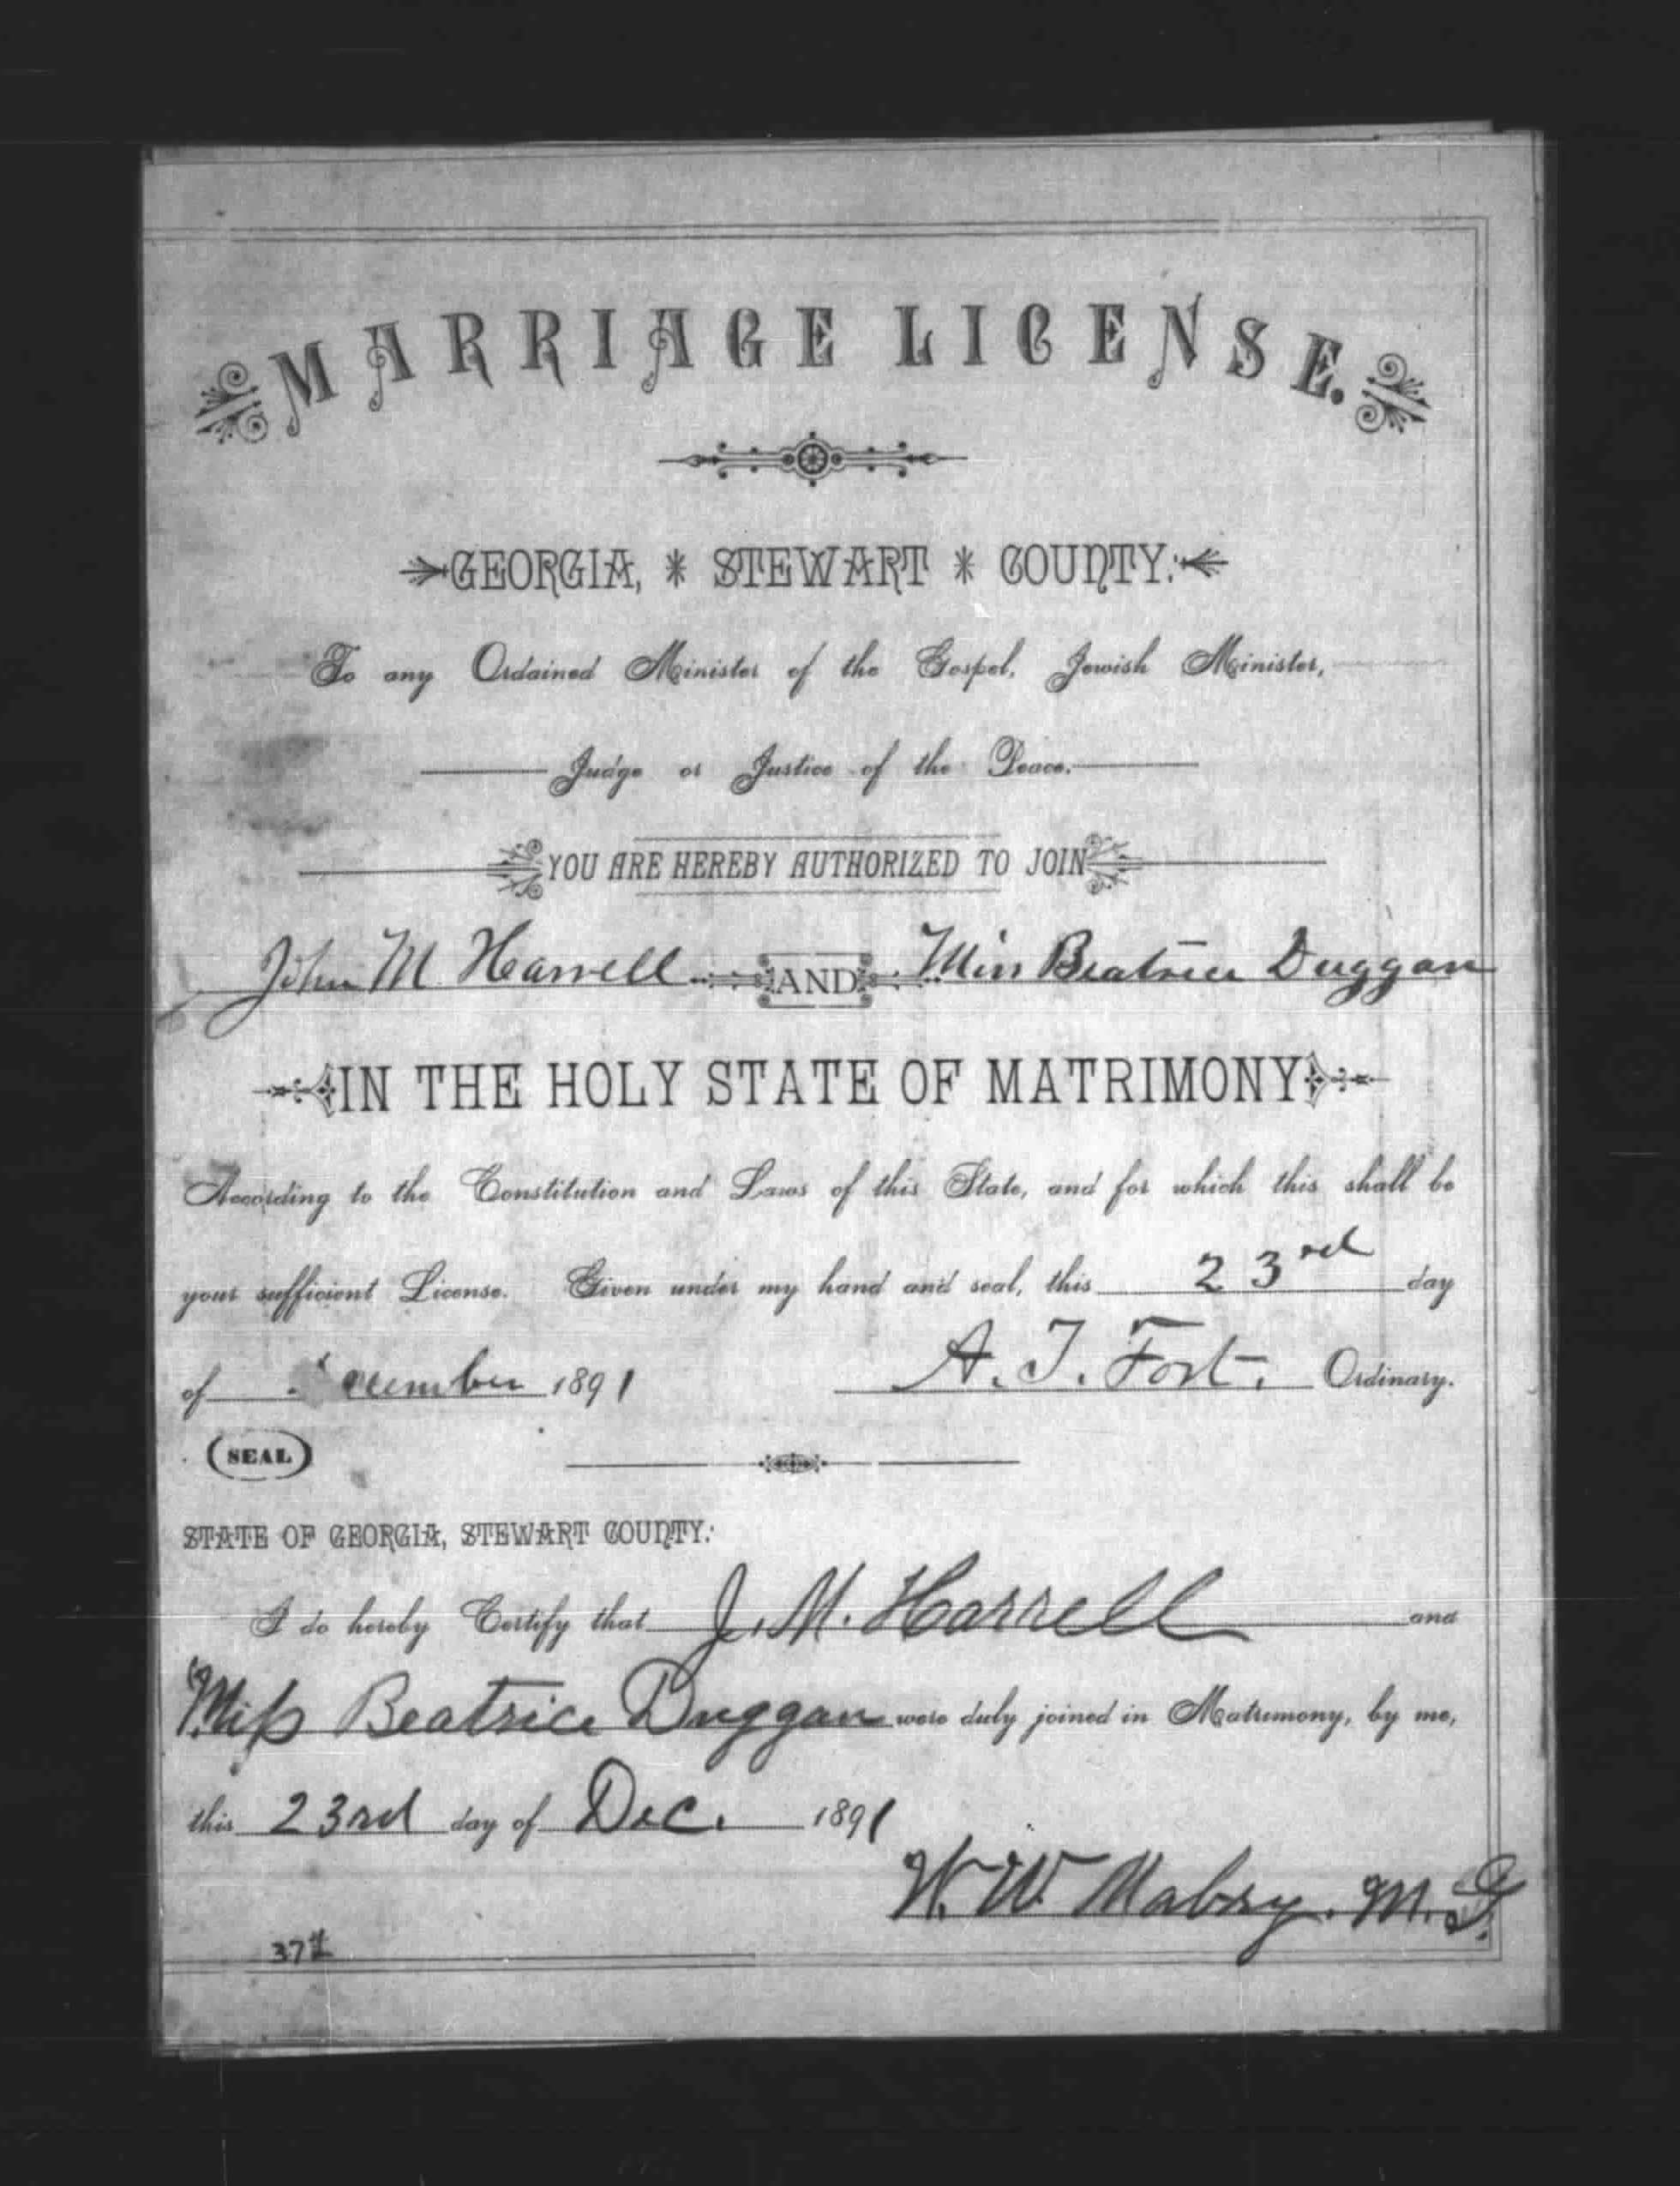 MARRIAGE LICENSE.
GEORGIA, * STEWART * COUNTY:
To any Ordained Minister of the Gospel, Jewish Minister,
Judge or Justice of the Peace.
YOU ARE HEREBY AUTHORIZED TO JOIN
John M. Harrell AND Miss Beatrice Duggan
IN THE HOLY STATE OF MATRIMONY
According to the Constitution and Laws of this State, and for which this shall be
your sufficient License. Given under my hand and seal, this 23rd day
of December 1891 A. T. Fort. Ordinary.
(SEAL)
STATE OF GEORGIA, STEWART COUNTY:
I do hereby Certify that J. M. Harrell and
Miss Beatrice Duggan were duly joined in Matrimony, by me,
this 23rd day of Dec. 1891
W. W. Mabry. M. G.